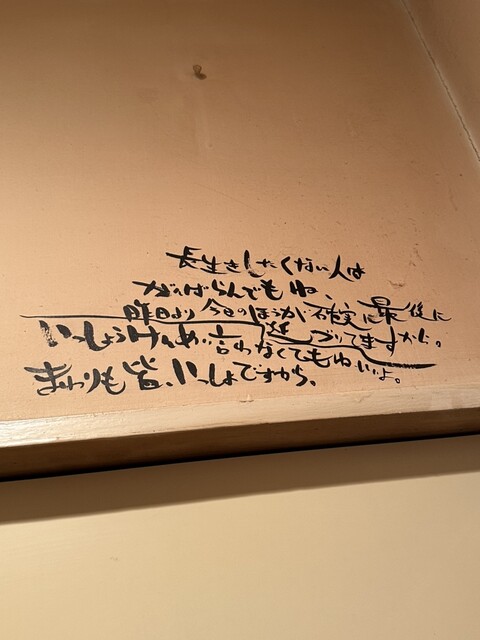 長生きしたくない人は
がんばらんでもね、
昨日より今日のほうが確実に最後に
近づいてますから。
いっしょうけんめい言わなくてもねいいよ。
まわりも皆、いっしょですから、